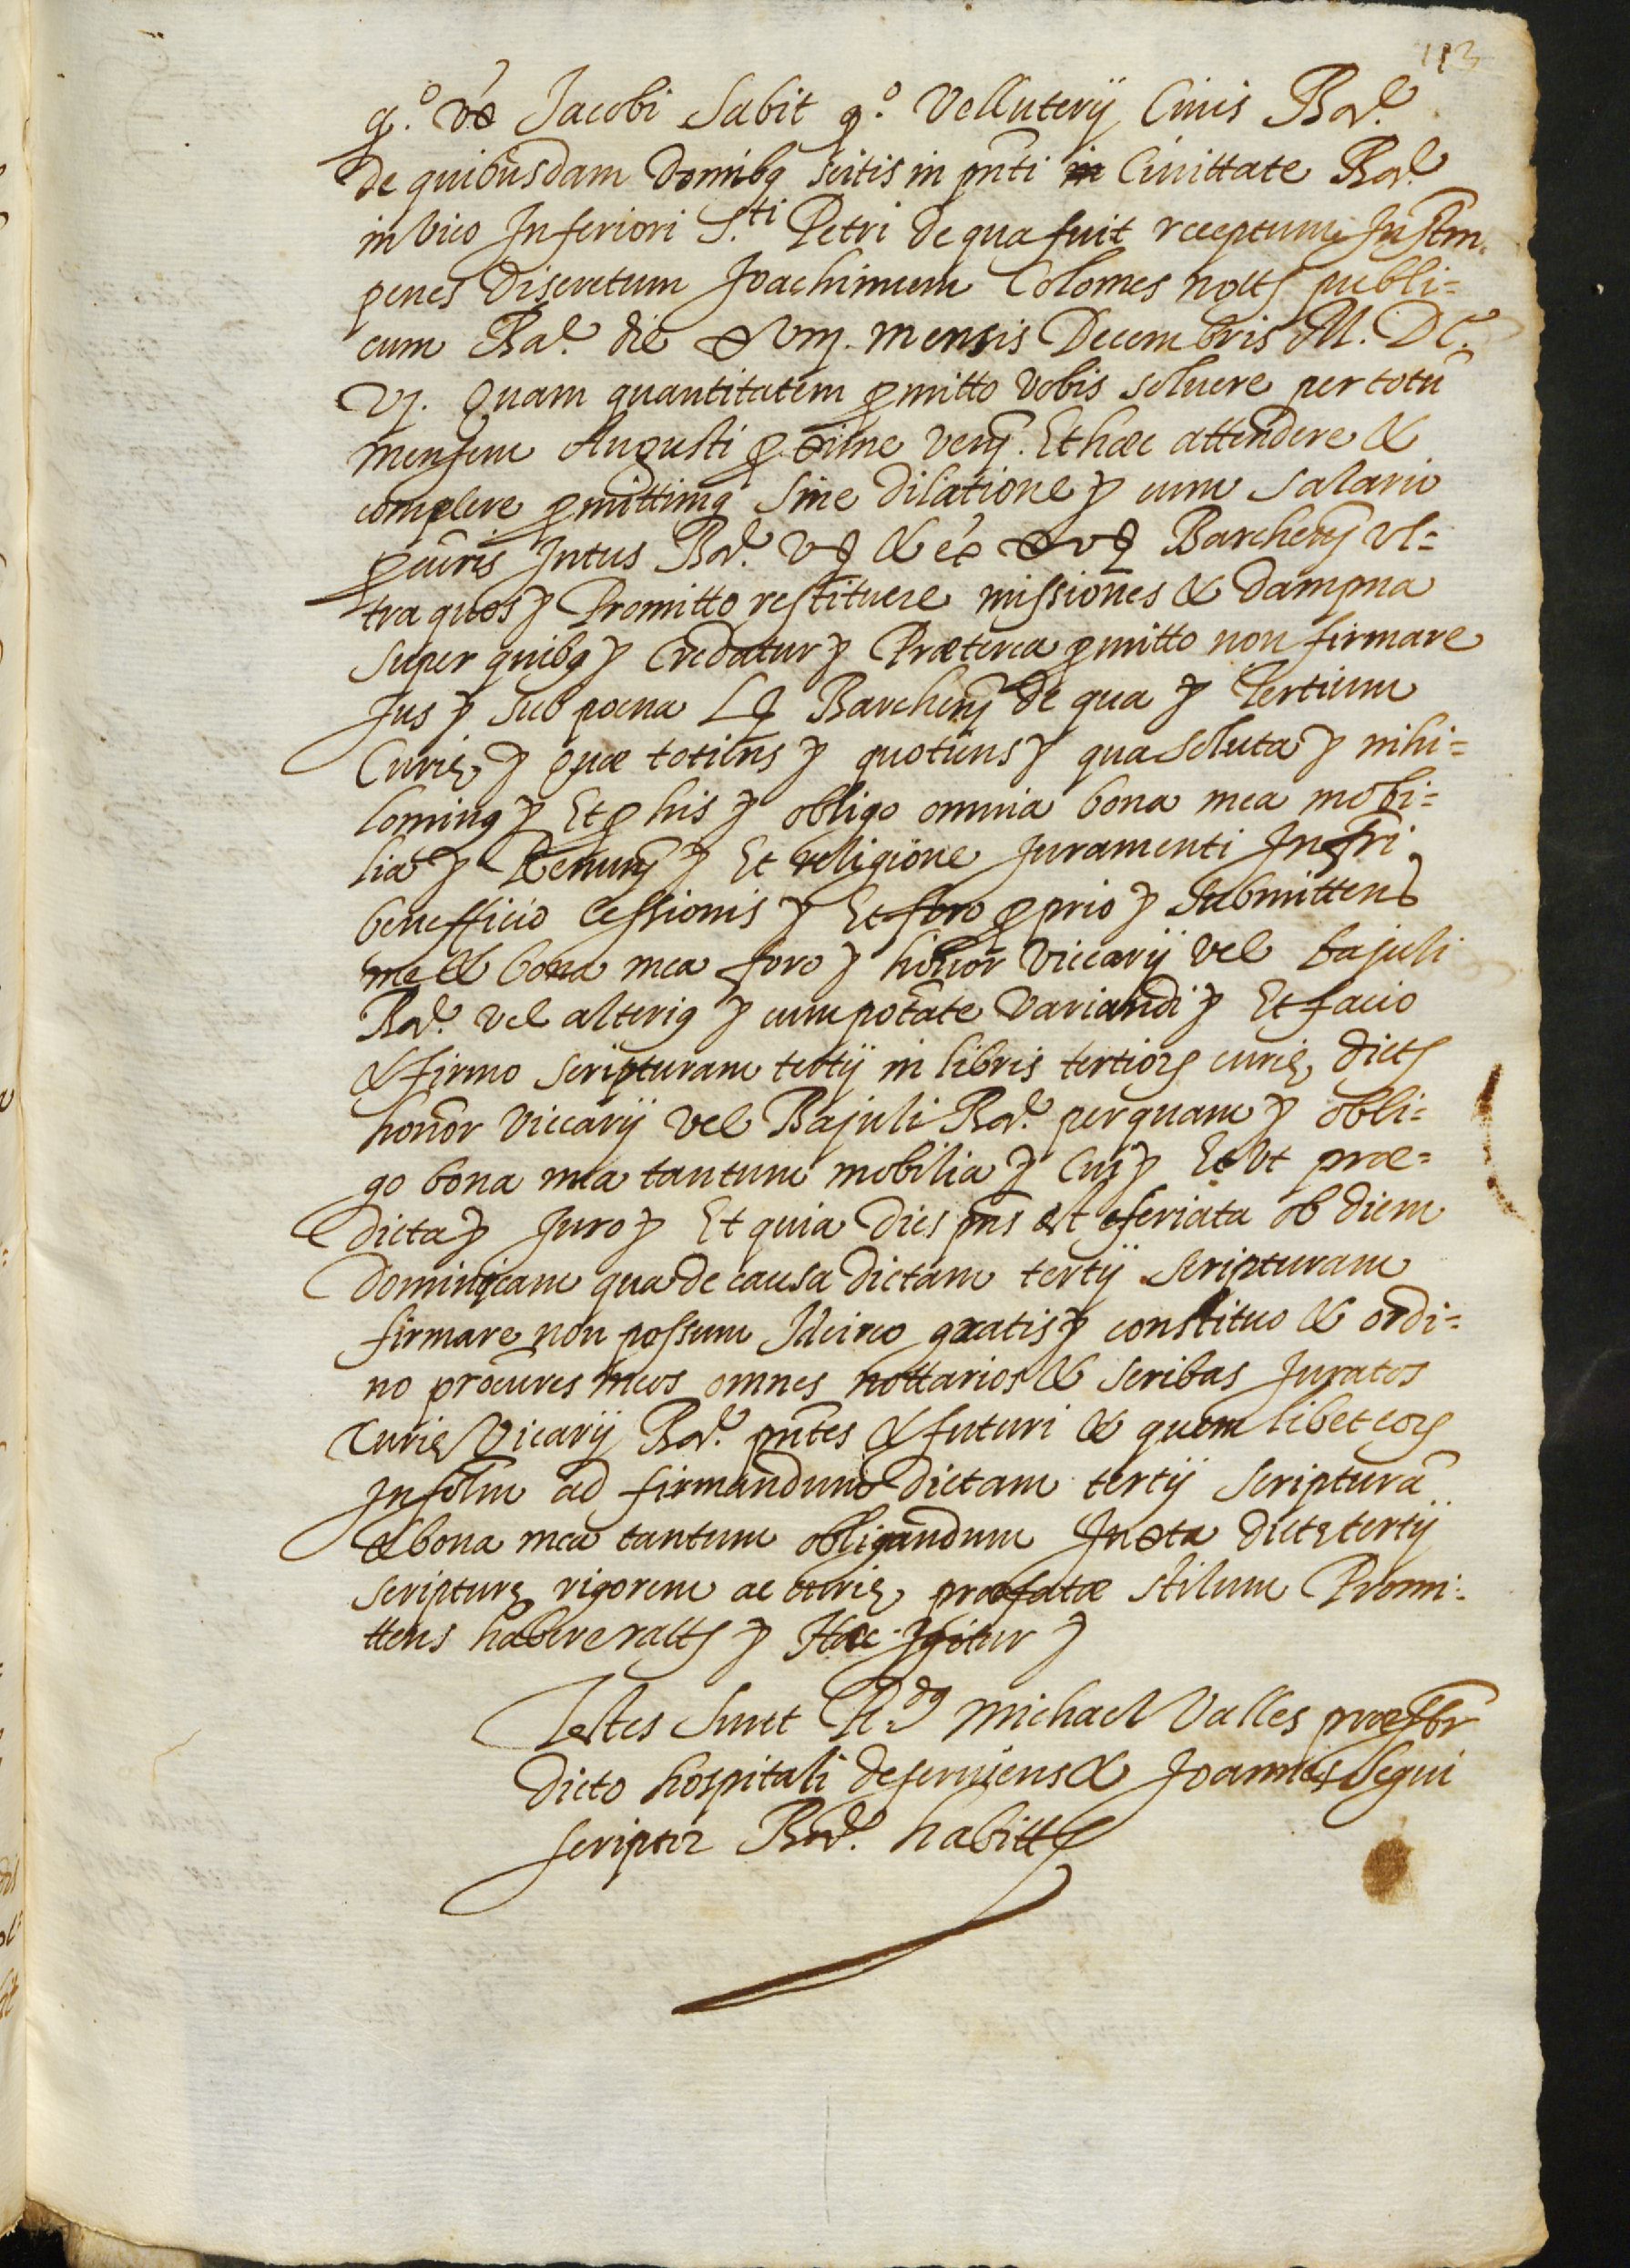 113
q.º vo Jacobi Sabit q.º Velluterij Civis Bar.ᵉ
de quibusdam Domibq scitis in pnti in Civittate Bar.ᵉ
in vico Inferiori S.ti Petri de qua fuit receptum Instm.
penes Discretum Joachimum Colomes nott publi=
cum Bar.ᵉ die xviij. mensis Decembris M. DC.
vj. Quam quantitatem pmitto vobis solvere per totũ
mensem Augusti pxime venj. Et hæc attendere &
complere pmittimq sine dilatione & cum salario
pcuris Intus Bar.ᵉ v s & ex x s Barchenj vl=
tra quos & Promitto restituere missiones & dampna
super quibq & Credatur & Præterea pmitto non firmare
Jus & sub pœna L s Barchenj de qua & Tertium
Curię & quæ totiens & quotiens & qua soluta & nihi=
lominq & Et p his & obligo omnia bona mea mobi=
lia & Renunj & Et religione Juramenti Infri
benefficio Cessionis & Et foro pprio & Submittens
me & bona mea foro & honor Viccarij vel bajuli
Bar.ᵉ vel alteriq & cum potate variandi & Et facio
& firmo scripturam tertij in libris tertiorum curię dict
honor Viccarij vel Bajuli Bar.ᵉ per quam & obli=
go bona mea tantum mobilia & Cui & Et vt præ=
dicta & Juro & Et quia dies pns est feriata ob diem
dominicam qua de causa dictam tertij scripturam
firmare non possum Idcirco gratis & constituo & ordi=
no procures meos omnes nottarios & scribas Juratos
Curię Vicarij Bar.ᵉ pntes & futuri & quem libet eorum
Insolm ad firmandum dictam tertij scripturã
& bona mea tantum obligandum Juxta dictę tertij
scripturę rigorem ac curię præfatæ stilum Promi=
ttens habere ratt & Hæc Igitur &
Testes sunt R.dq Michael Valles præsbr
dicto hospitali deserviens & Joannes Segui
scriptor Bar.ᵉ habitt